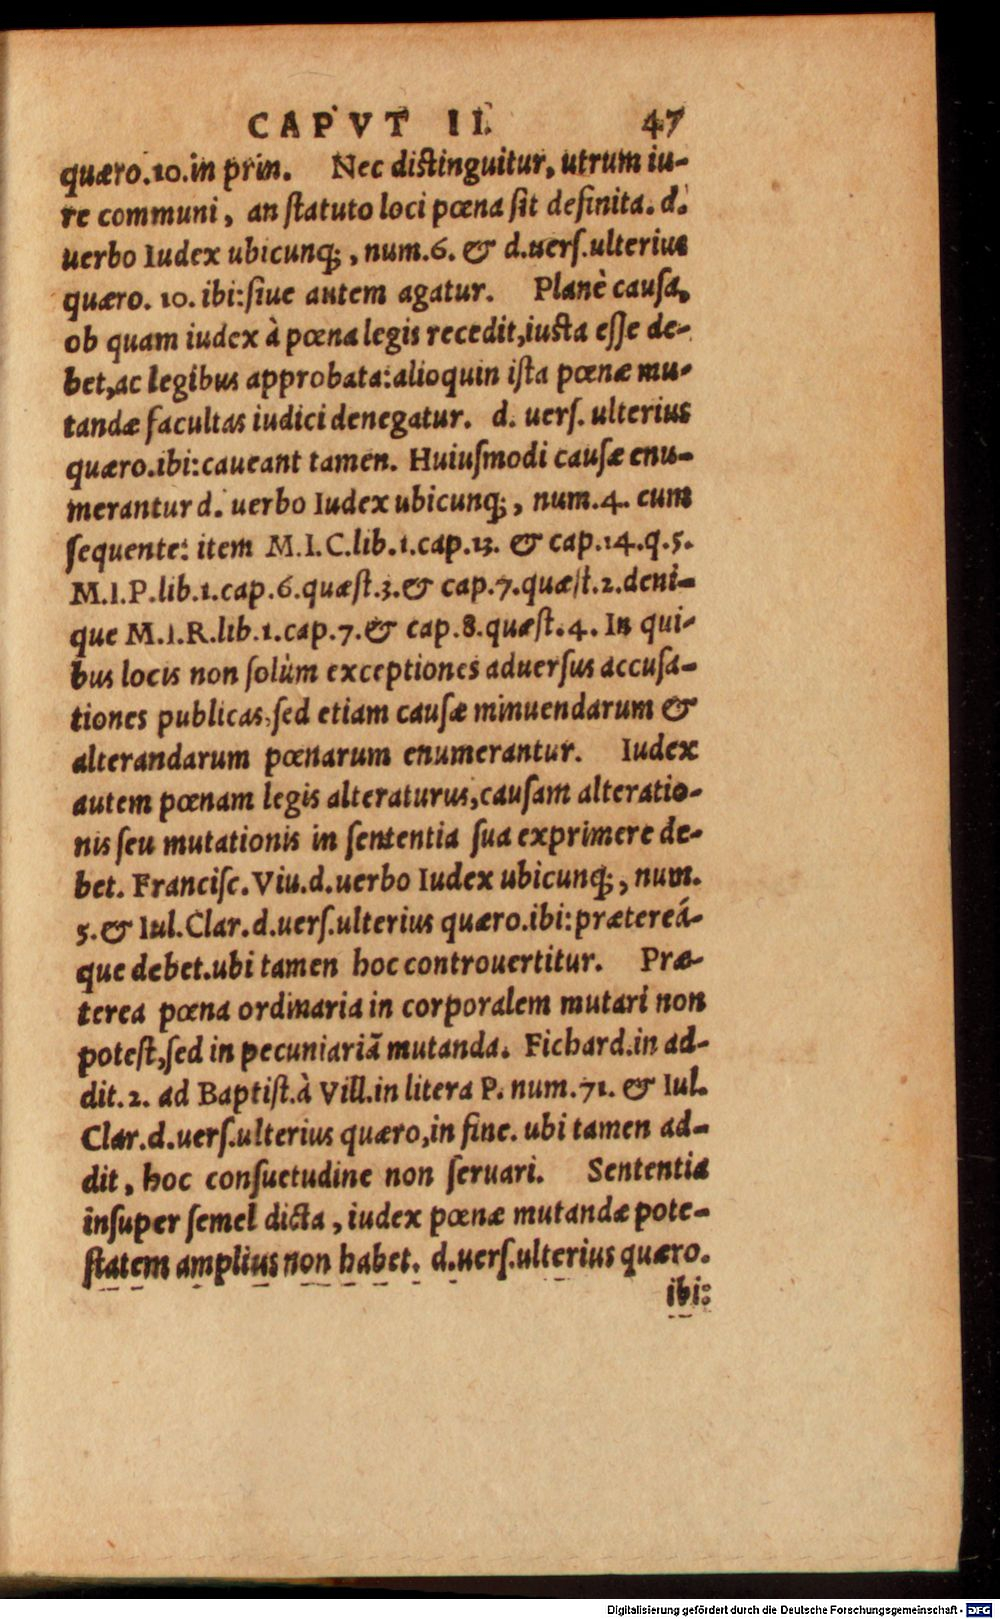 CAPVT II. 47
quæro.10.in prin. Nec distinguitur, utrum iu-
re communi, an ſtatuto loci pœna ſit definita. d.
uerbo Iudex ubicunq;, num.6. & d.uerſ.ulterius
quæro. 10. ibi:ſiue autem agatur. Planè cauſa,
ob quam iudex à pœna legis recedit,iusta eſſe de-
bet,ac legibus approbata:alioquin iſta pœnæ mu-
tandæ facultas iudici denegatur. d. uerſ. ulterius
quæro.ibi:caueant tamen. Huiuſmodi cauſæ enu-
merantur d. uerbo Iudex ubicunq;, num.4. cum
ſequente: item M.I.C.lib.1.cap.13. & cap.14.q.5.
M.I.P.lib.1.cap.6.quæſt.3.& cap.7.quæſt.2.deni-
que M.I.R.lib.1.cap.7.& cap.8.quæſt.4. In qui-
bus locis non ſolùm exceptiones aduerſus accuſa-
tiones publicas,ſed etiam cauſæ minuendarum &
alterandarum pœnarum enumerantur. Iudex
autem pœnam legis alteraturus,cauſam alteratio-
nis ſeu mutationis in ſententia ſua exprimere de-
bet. Franciſc.Viu.d.uerbo Iudex ubicunq;, num.
5.& Iul.Clar.d.uerſ.ulterius quæro.ibi:prætereá-
que debet.ubi tamen hoc controuertitur. Præ-
terea pœna ordinaria in corporalem mutari non
poteſt,ſed in pecuniariã mutanda. Fichard.in ad-
dit.2. ad Baptiſt.à Vill.in litera P. num.71. & Iul.
Clar.d.uerſ.ulterius quæro,in fine. ubi tamen ad-
dit, hoc conſuetudine non ſeruari. Sententia
inſuper ſemel dicta, iudex pœnæ mutandæ pote-
ſtatem amplius non habet. d.uerſ.ulterius quæro.
ibi:
Digitalisierung gefördert durch die Deutsche Forschungsgemeinschaft - DFG